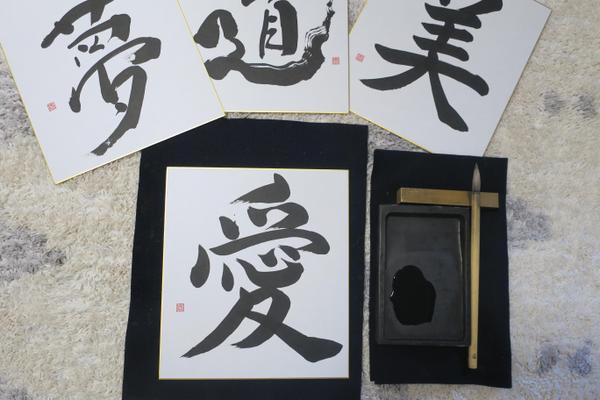 夢
道
美
愛